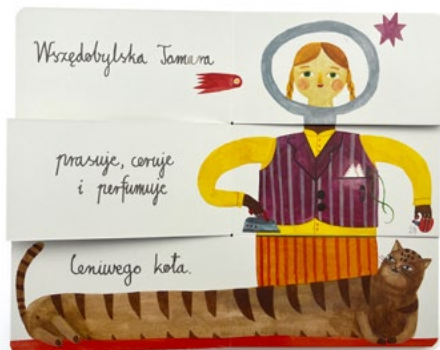 Wszędobylska Tamara
prasuje, ceruje
i perfumuje
leniwego kota.